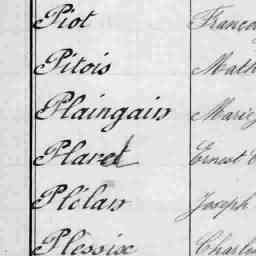 Piot Franço
Pitois Math
Plaingain Marie
Planel Ernest
Plélan Joseph
Plessix Charles